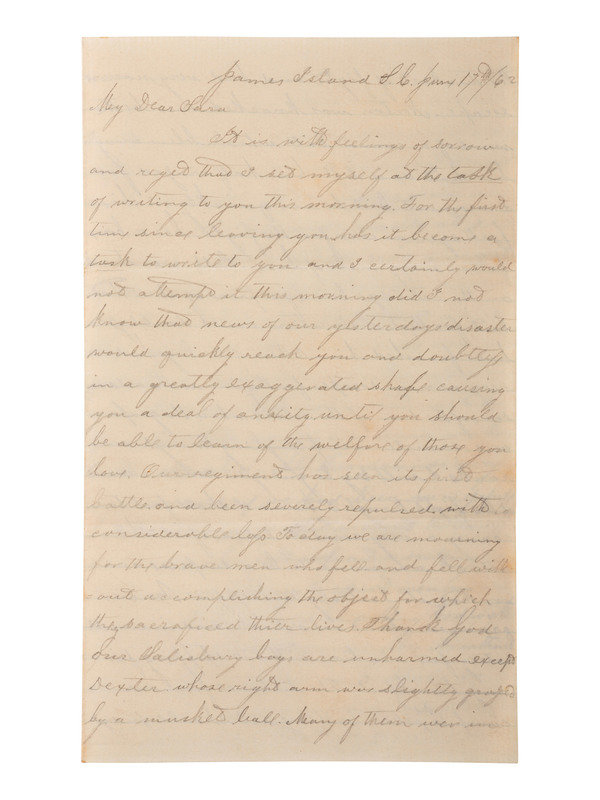 James Island S.C. June 17th/62
My Dear Sara
It is with feelings of sorrow
and reget that I set myself at the task
of writing to you this morning. For the first
time since leaving you has it become a
task to write to you and I certainly would
not attempt it this morning did I not
know that news of our yesterdays disaster
would quickly reach you and doubtless
in a greatly exaggerated shape causing
you a deal of anxity until you should
be able to learn of the welfare of those you
love. Our regiment has seen its first
battle and been severely repulsed with
considerable loss To day we are mourning
for the brave men who fell and fell with
out accomplishing the object for which
they sacraficed thier lives. Thank God
our Salisbury boys are unharmed except
Dexter whose right arm was slightly grazed
by a musket ball. Many of them wer in